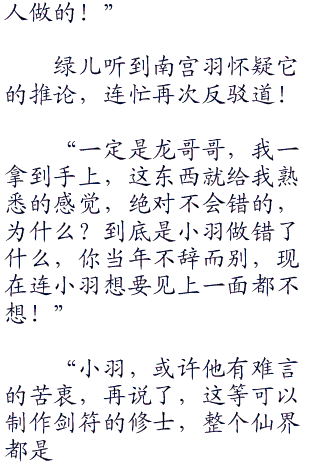 人做的！”
绿儿听到南宫羽怀疑它
的推论，连忙再次反驳道！
“一定是龙哥哥，我一
拿到手上，这东西就给我熟
悉的感觉，绝对不会错的，
为什么？到底是小羽做错了
什么，你当年不辞而别，现
在连小羽想要见上一面都不
想！”
“小羽，或许他有难言
的苦衷，再说了，这等可以
制作剑符的修士，整个仙界
都是